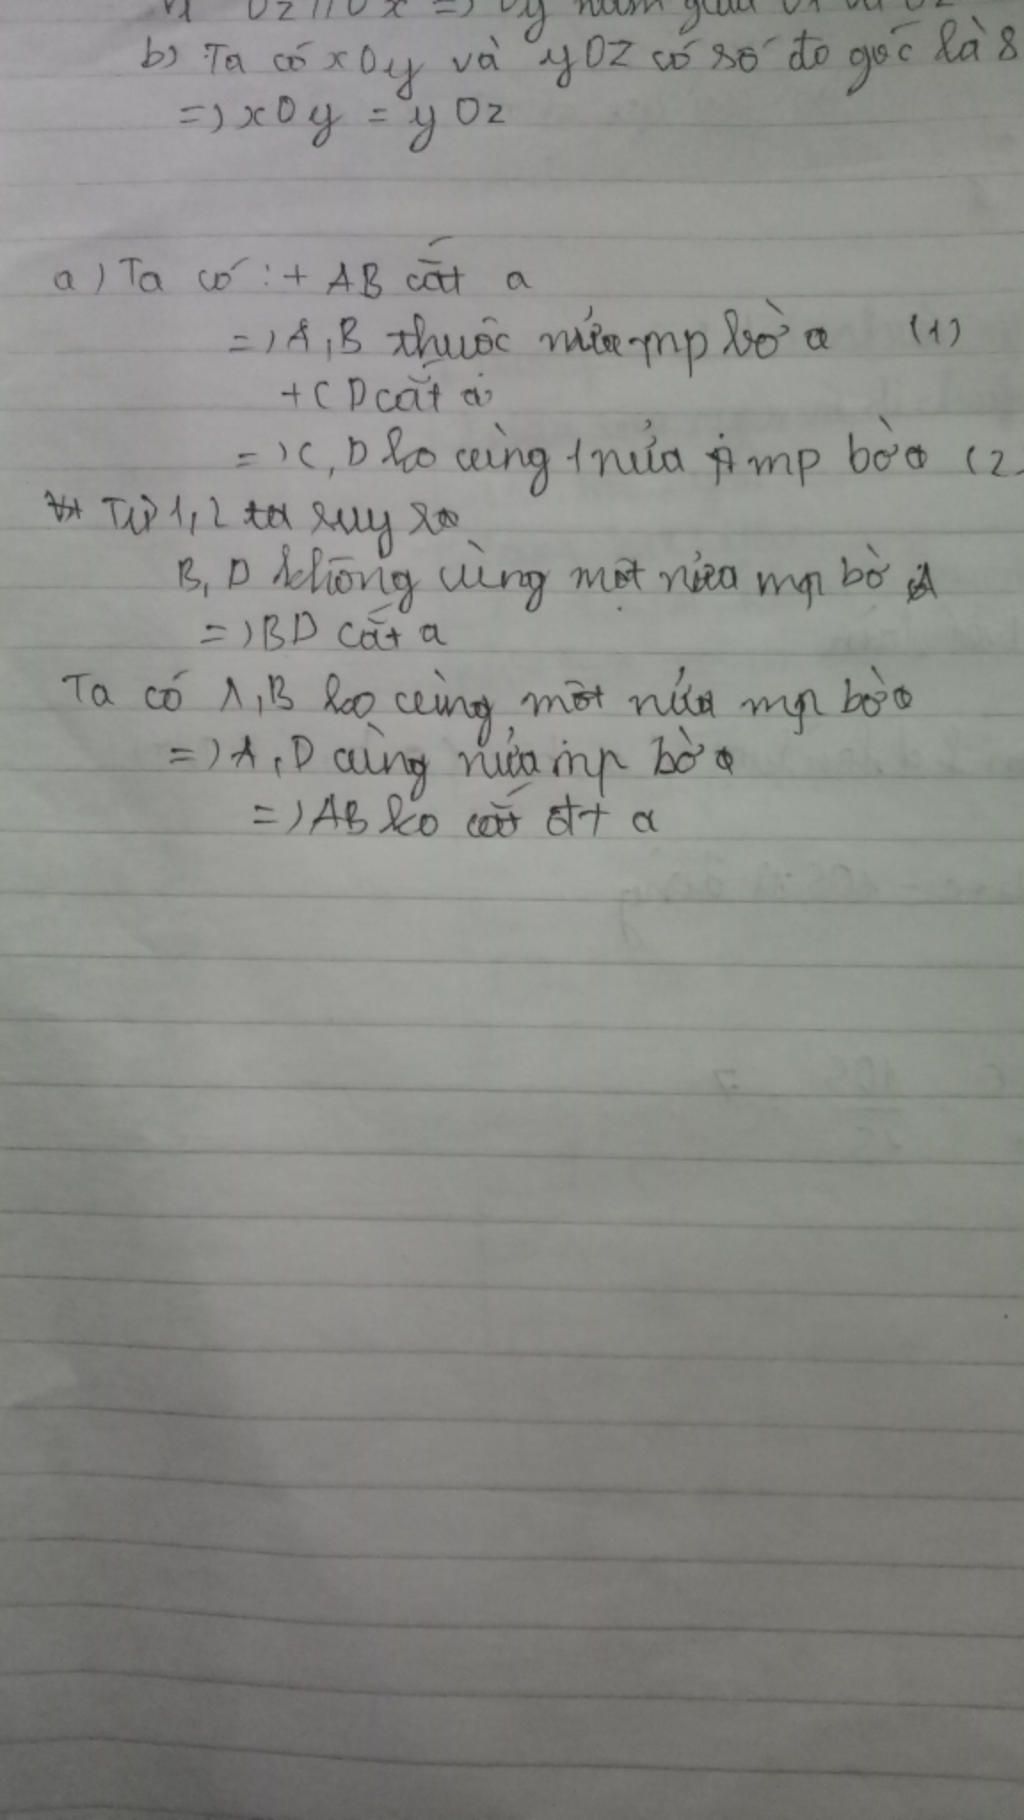 Oz // Ox => Oy nằm giữa Ox và Oz
b) Ta có xOy và yOz có số đo góc là 8
=> xOy = yOz
a) Ta có : + AB cắt a
=> A, B thuộc nửa mp bờ a (1)
+ CD cắt a
=> C, D ko cùng 1 nửa mp bờ a (2
Từ 1, 2 ta suy ra
B, D không cùng một nửa mp bờ a
=> BD cắt a
Ta có A, B ko cùng một nửa mp bờ a
=> A, D cùng nửa mp bờ a
=> AB ko cắt đt a